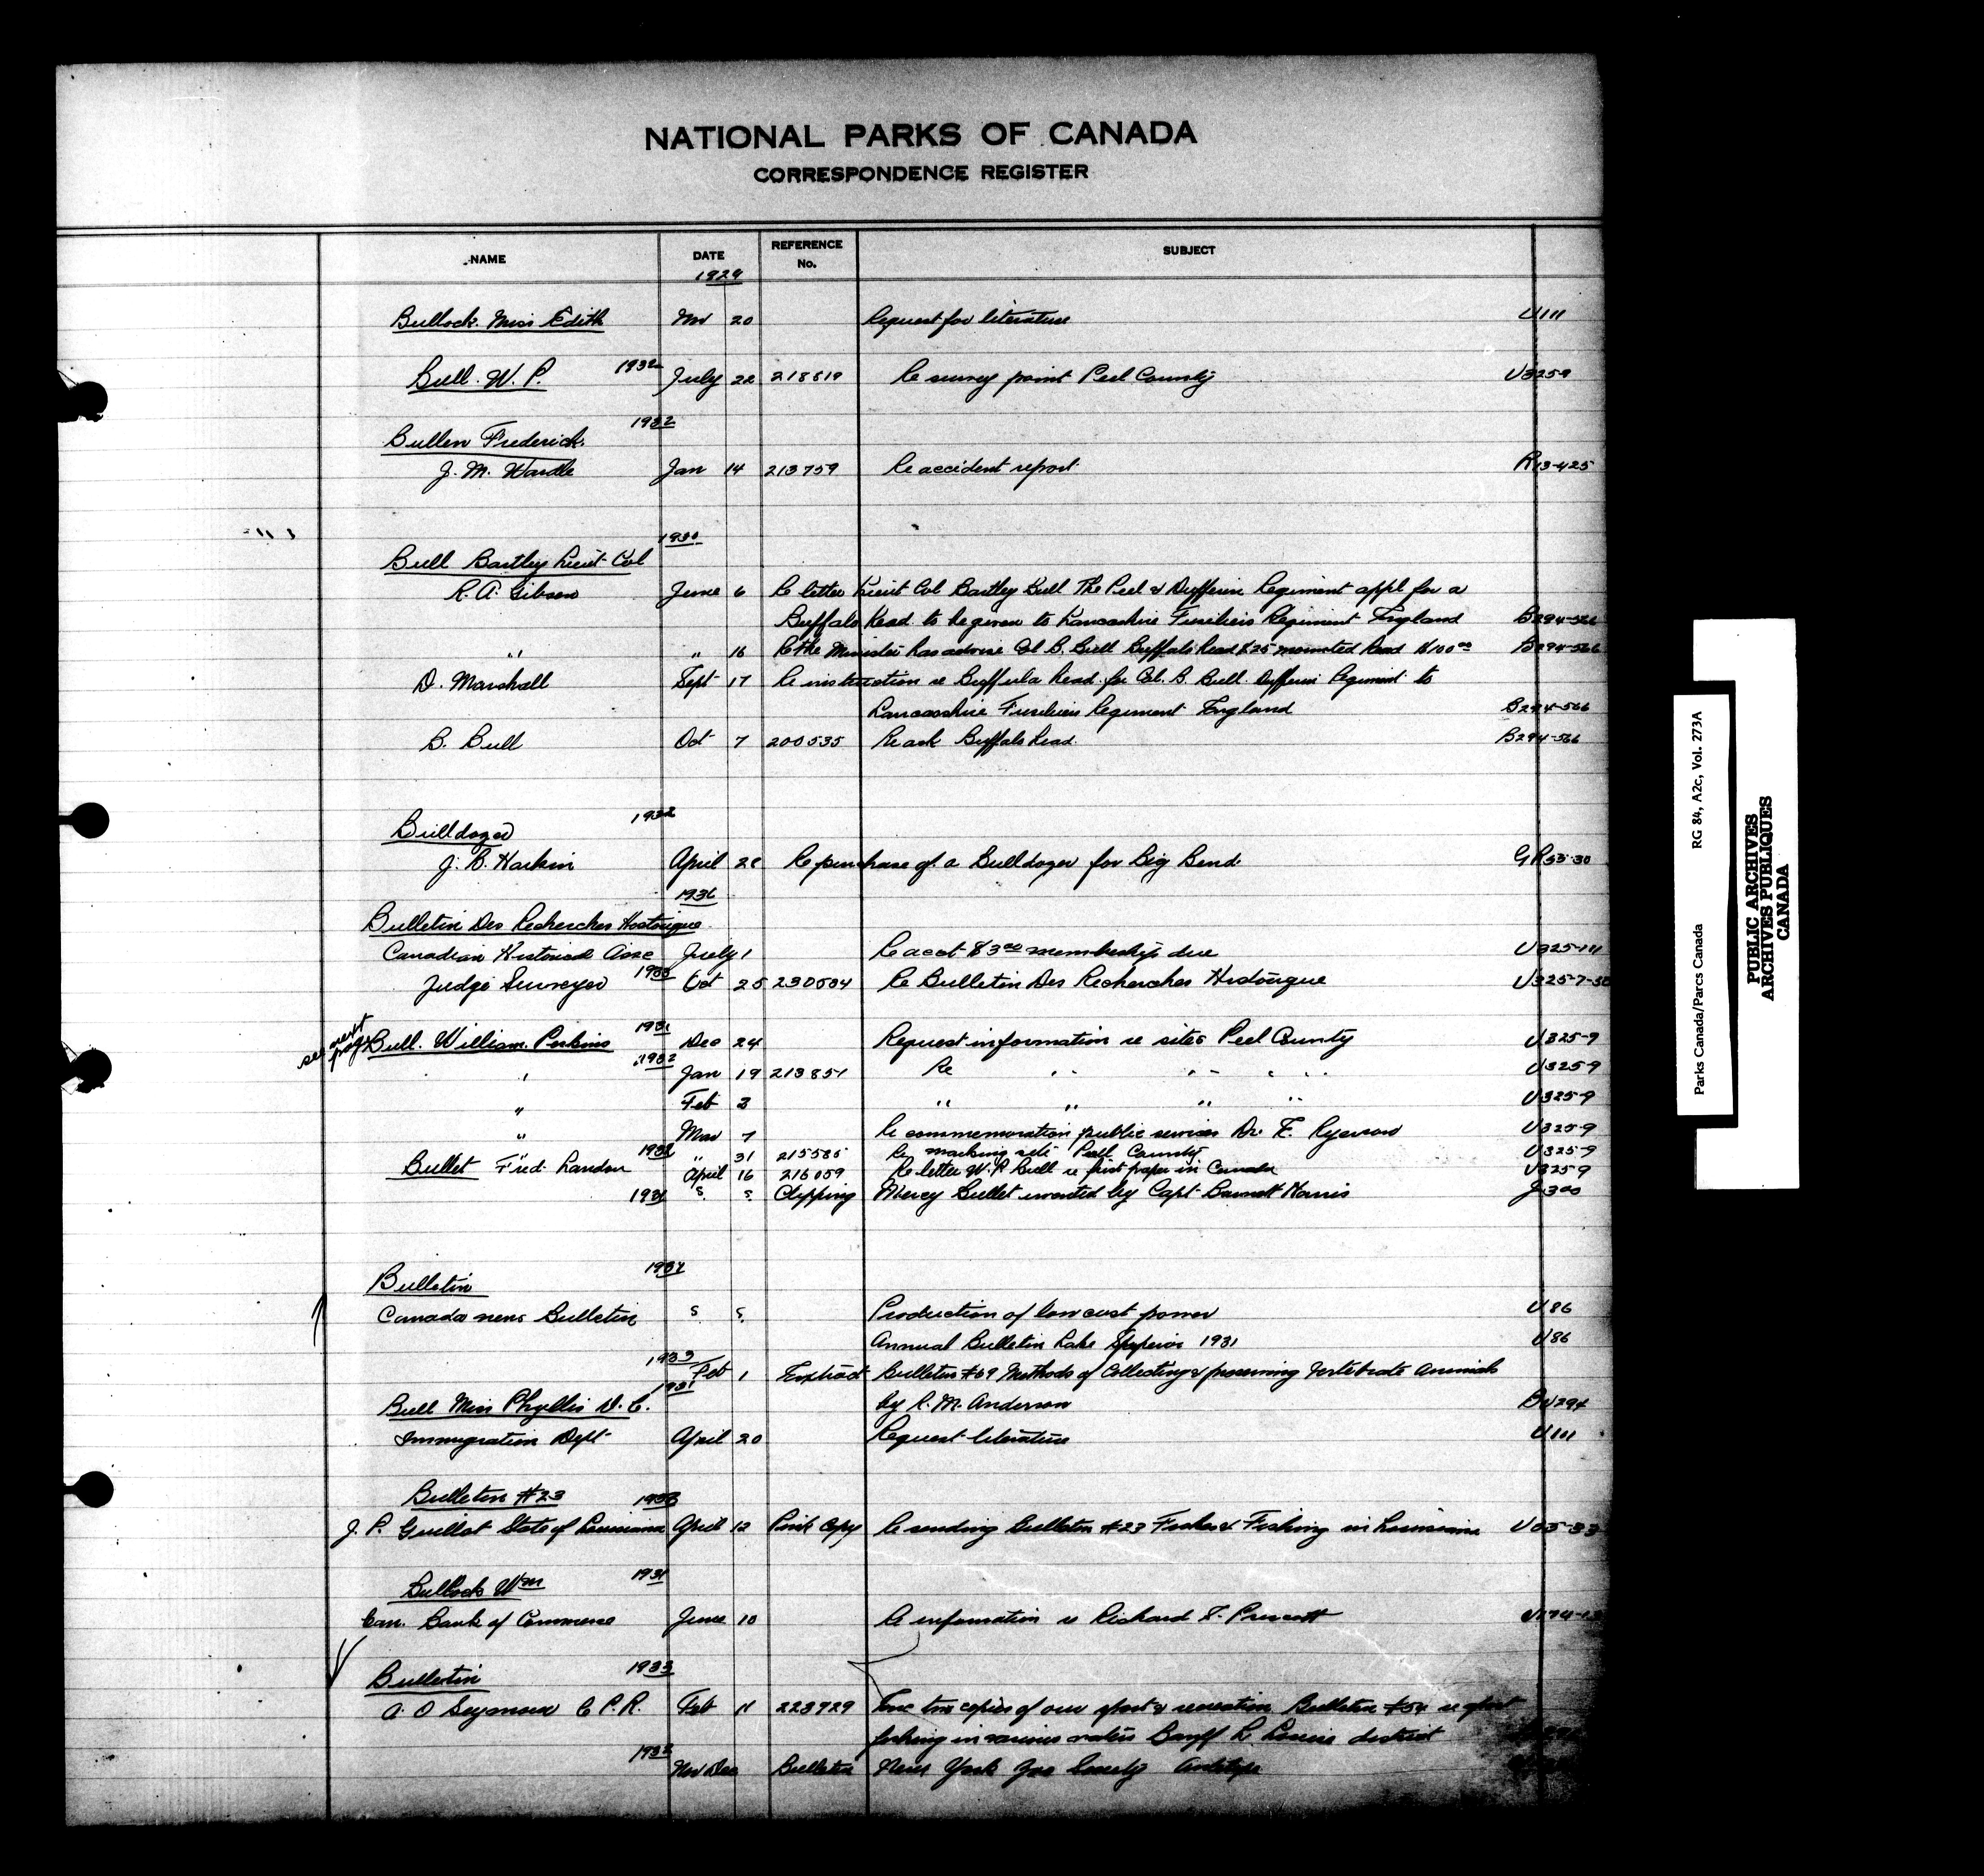 NATIONAL PARKS OF CANADA
CORRESPONDENCE REGISTER
NAME DATE REFERENCE No. SUBJECT
1929
Bullock Miss Edith Nov 20 Request for literature U111
Bull W. P. 1932 July 22 218619 Re survey point Peel County U325-9
1932
Bullen Frederick
J. M. Wardle Jan 14 213759 Re accident report R13-425
1930
Bull Bartley Lieut Col
R. A. Gibson June 6 Re letter Lieut Col Bartley Bull The Peel & Dufferin Regiment appl for a
Buffalo Head to be given to Lancashire Fusiliers Regiment England B294-566
" " 16 Re the Minister has advise Col B. Bull Buffalo head $25 mounted head $100 00 B294-566
D. Marshall Sept 17 Re instruction re Buffalo head for Col. B. Bull Dufferin Regiment to
Lancashire Fusiliers Regiment England B294-566
B. Bull Oct 7 200535 Re ack Buffalo head B294-566
1932
Bulldozer
J. B. Harkin April 28 Re purchase of a Bulldozer for Big Bend GR53-30
1936
Bulletin Des Recherches Historique
Canadian Historical Assc July 1 Re acct $3 00 membership due U325-111
Judge Surveyer 1933 Oct 25 230504 Re Bulletin Des Recherches Historique U325-7-
see next page
Bull. William Perkins 1931 Dec 24 Request information re sites Peel County U325-9
" 1932 Jan 19 213851 Re " " " " U325-9
" Feb 3 " " " " U325-9
" Mar 7 Re commemoration public services Dr. E. Ryerson U325-9
" 1932 " 31 215585 Re marking site Peel County U325-9
Bullet Fred Landon April 16 216059 Re letter W. P. Bull re first paper in Canada U325-9
1931 S. S. Clipping Mercy Bullet invented by Capt Barnett Harris J300
1931
Bulletin
Canada news Bulletin S. S. Production of low cost power U86
Annual Bulletin Lake Superior 1931 U86
1933 Feb 1 Extract Bulletin #69 Methods of Collecting & preserving Vertebrate Animals
by R. M. Anderson BU294
1931
Bull Miss Phyllis D. C.
Immigration Dept April 20 Request literature U111
Bulletin #23 1933
J. P. Guillot State of Louisiana April 12 Pink Copy Re sending Bulletin #23 Fishes & Fishing in Louisiana
Bullock Wm 1931
Can. Bank of Commerce June 10 Re information re Richard
Bulletin 1933
A. O Seymour C P. R. Feb 11 223929 two copies of our sport & recreation Bulletin #54 re sport
fishing in various waters Banff L Louise district
1933 Nov Dec Bulletin New York Zoo Society
Parks Canada/Parcs Canada RG 84, A2c, Vol. 273A
PUBLIC ARCHIVES
ARCHIVES PUBLIQUES
CANADA